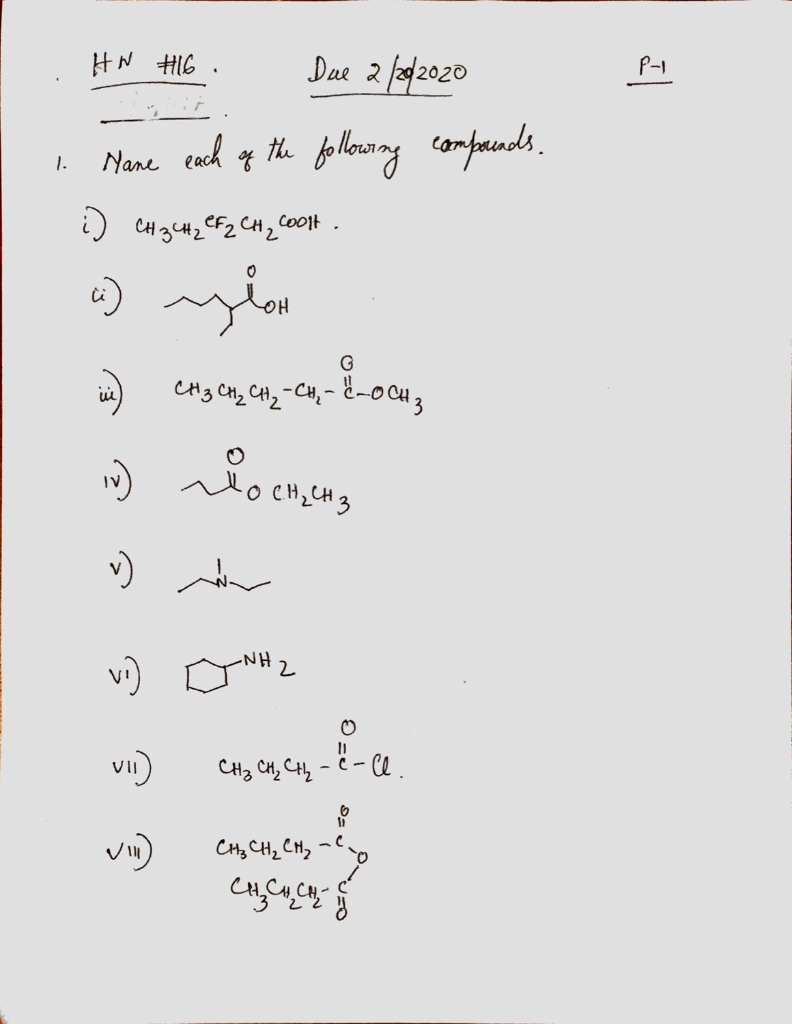 HW #16. Due 2/20/2020 P-1
1. Name each of the following compounds.
i) CH3CH2CF2CH2COOH.
ii) O
OH
O
iii) CH3CH2CH2-CH2-C-OCH3
O
iv) O CH2CH3
v) N
vi) NH2
O
vii) CH3CH2CH2-C-Cl.
O
viii) CH3CH2CH2-C
O
CH3CH2CH2-C
O